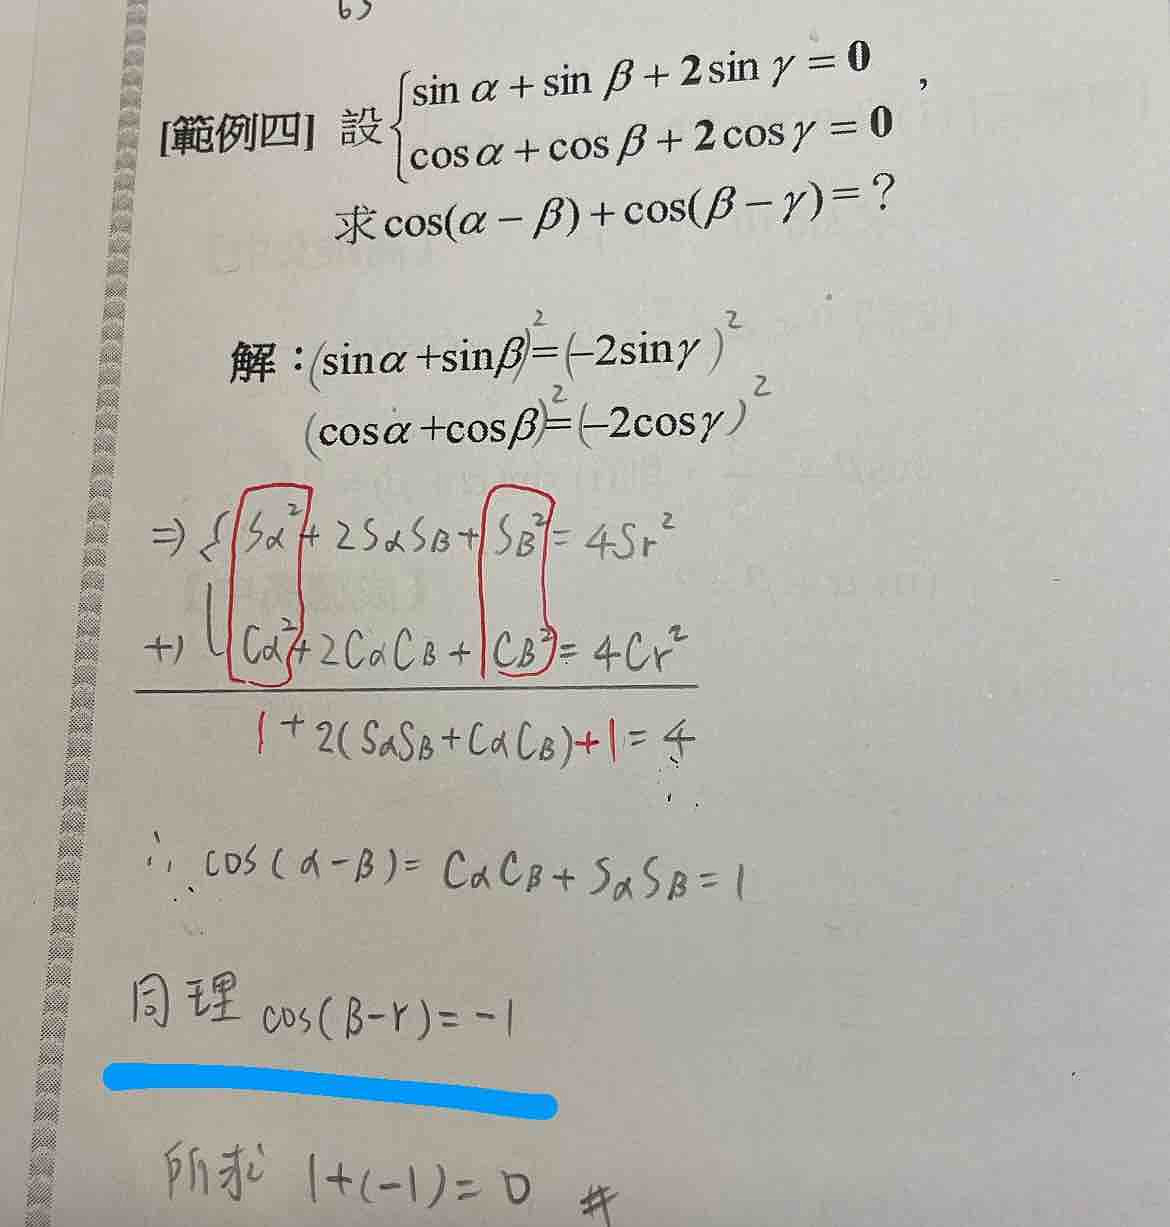 [範例四] 設 { sin α + sin β + 2 sin γ = 0 ,
cos α + cos β + 2 cos γ = 0
求 cos(α − β) + cos(β − γ) = ?
解：(sinα +sinβ)²=(−2sinγ)²
(cosα +cosβ)²=(−2cosγ)²
⇒ { Sα² + 2SαSβ + Sβ² = 4Sr²
+) Cα² + 2CαCβ + Cβ² = 4Cr²
1 + 2(SαSβ + CαCβ) + 1 = 4
∴ cos(α−β) = CαCβ + SαSβ = 1
同理 cos(β−r) = −1
所求 1+(−1) = 0 #